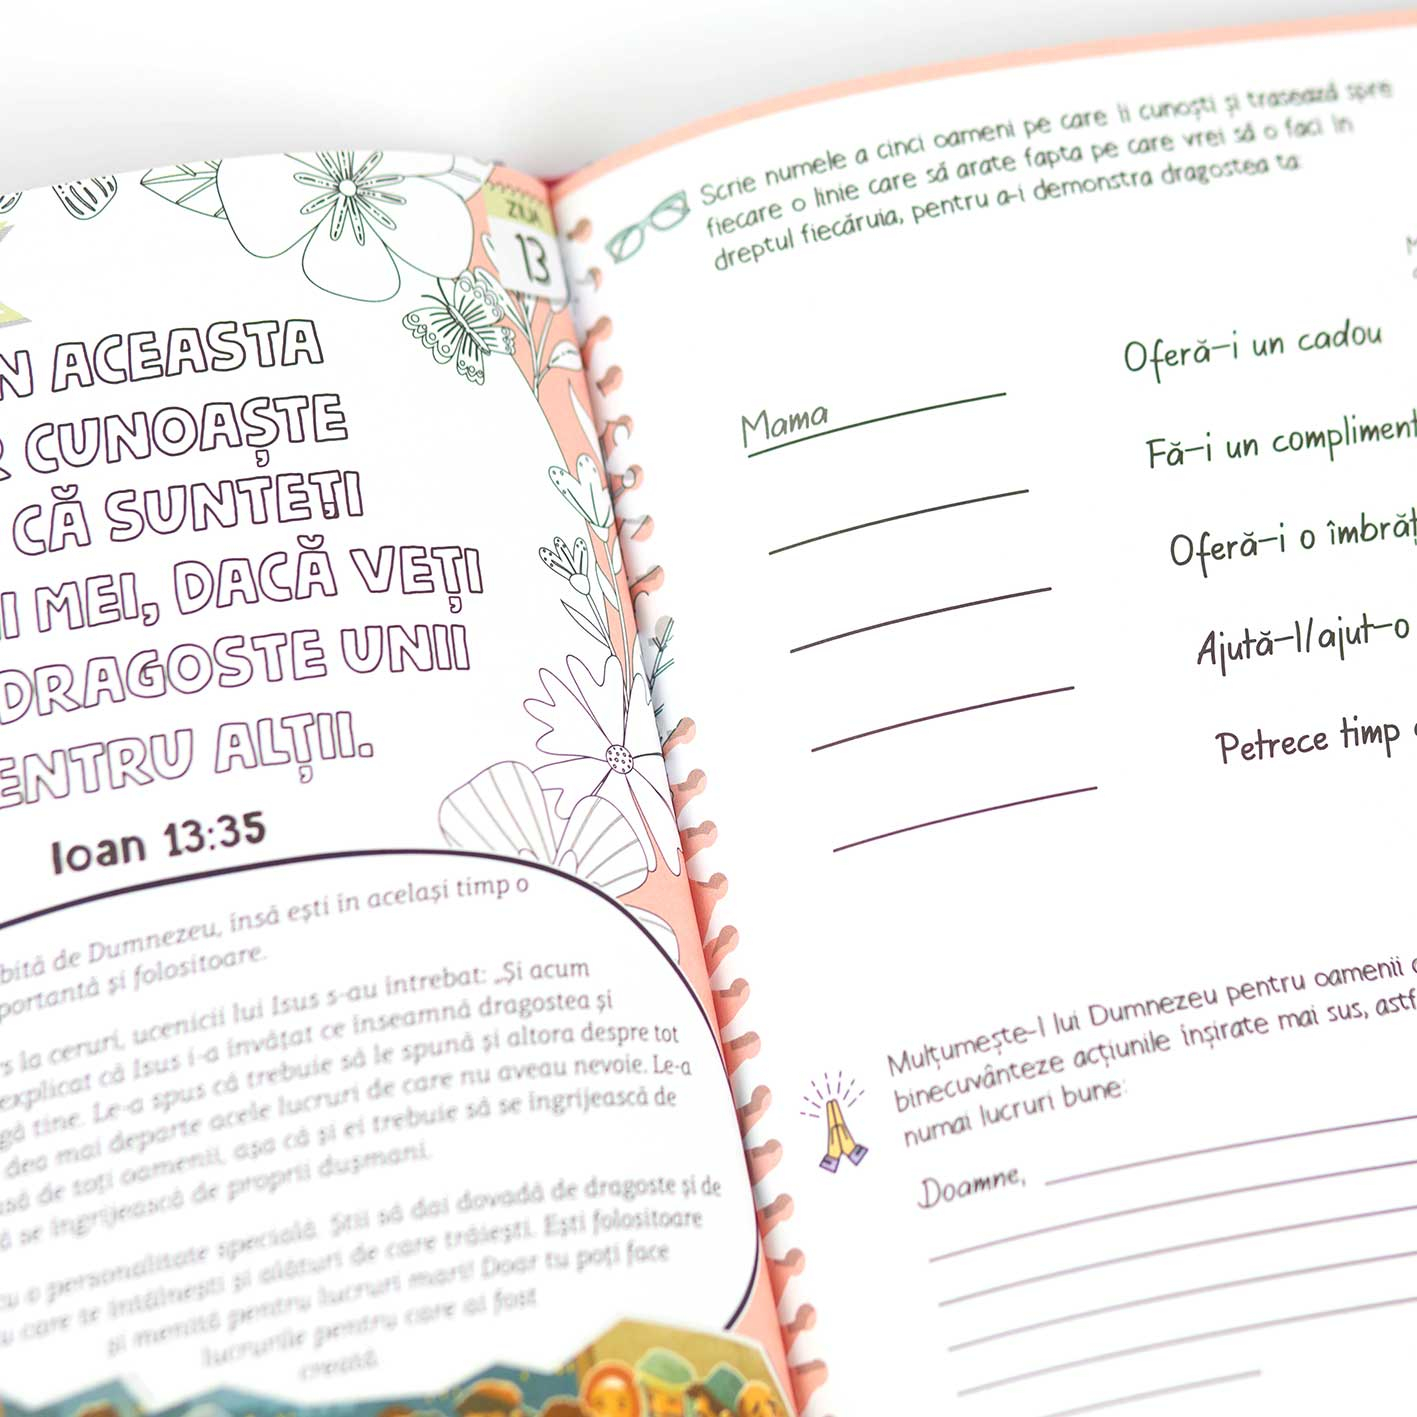 ZIUA
13
N ACEASTA
R CUNOAȘTE
CĂ SUNTEȚI
II MEI, DACĂ VEȚI
DRAGOSTE UNII
ENTRU ALȚII.
Ioan 13:35
bită de Dumnezeu, însă ești în același timp o
portantă și folositoare.
s la ceruri, ucenicii lui Isus s-au întrebat: „Și acum
explicat că Isus i-a învățat ce înseamnă dragostea și
gă tine. Le-a spus că trebuie să le spună și altora despre tot
dea mai departe acele lucruri de care nu aveau nevoie. Le-a
asă de toți oamenii, așa că și ei trebuie să se îngrijească de
ă se îngrijească de proprii dușmani.
cu o personalitate specială. Știi să dai dovadă de dragoste și de
u care te întâlnești și alături de care trăiești. Ești folositoare
și menită pentru lucruri mari! Doar tu poți face
lucrurile pentru care ai fost
creată.
Scrie numele a cinci oameni pe care îi cunoști și trasează spre
fiecare o linie care să arate fapta pe care vrei să o faci în
dreptul fiecăruia, pentru a-i demonstra dragostea ta:
Mama
Oferă-i un cadou
Fă-i un compliment
Oferă-i o îmbrăț
Ajută-l/ajut-o
Petrece timp
Mulțumește-l lui Dumnezeu pentru oamenii
binecuvânteze acțiunile înșirate mai sus, astf
numai lucruri bune:
Doamne,